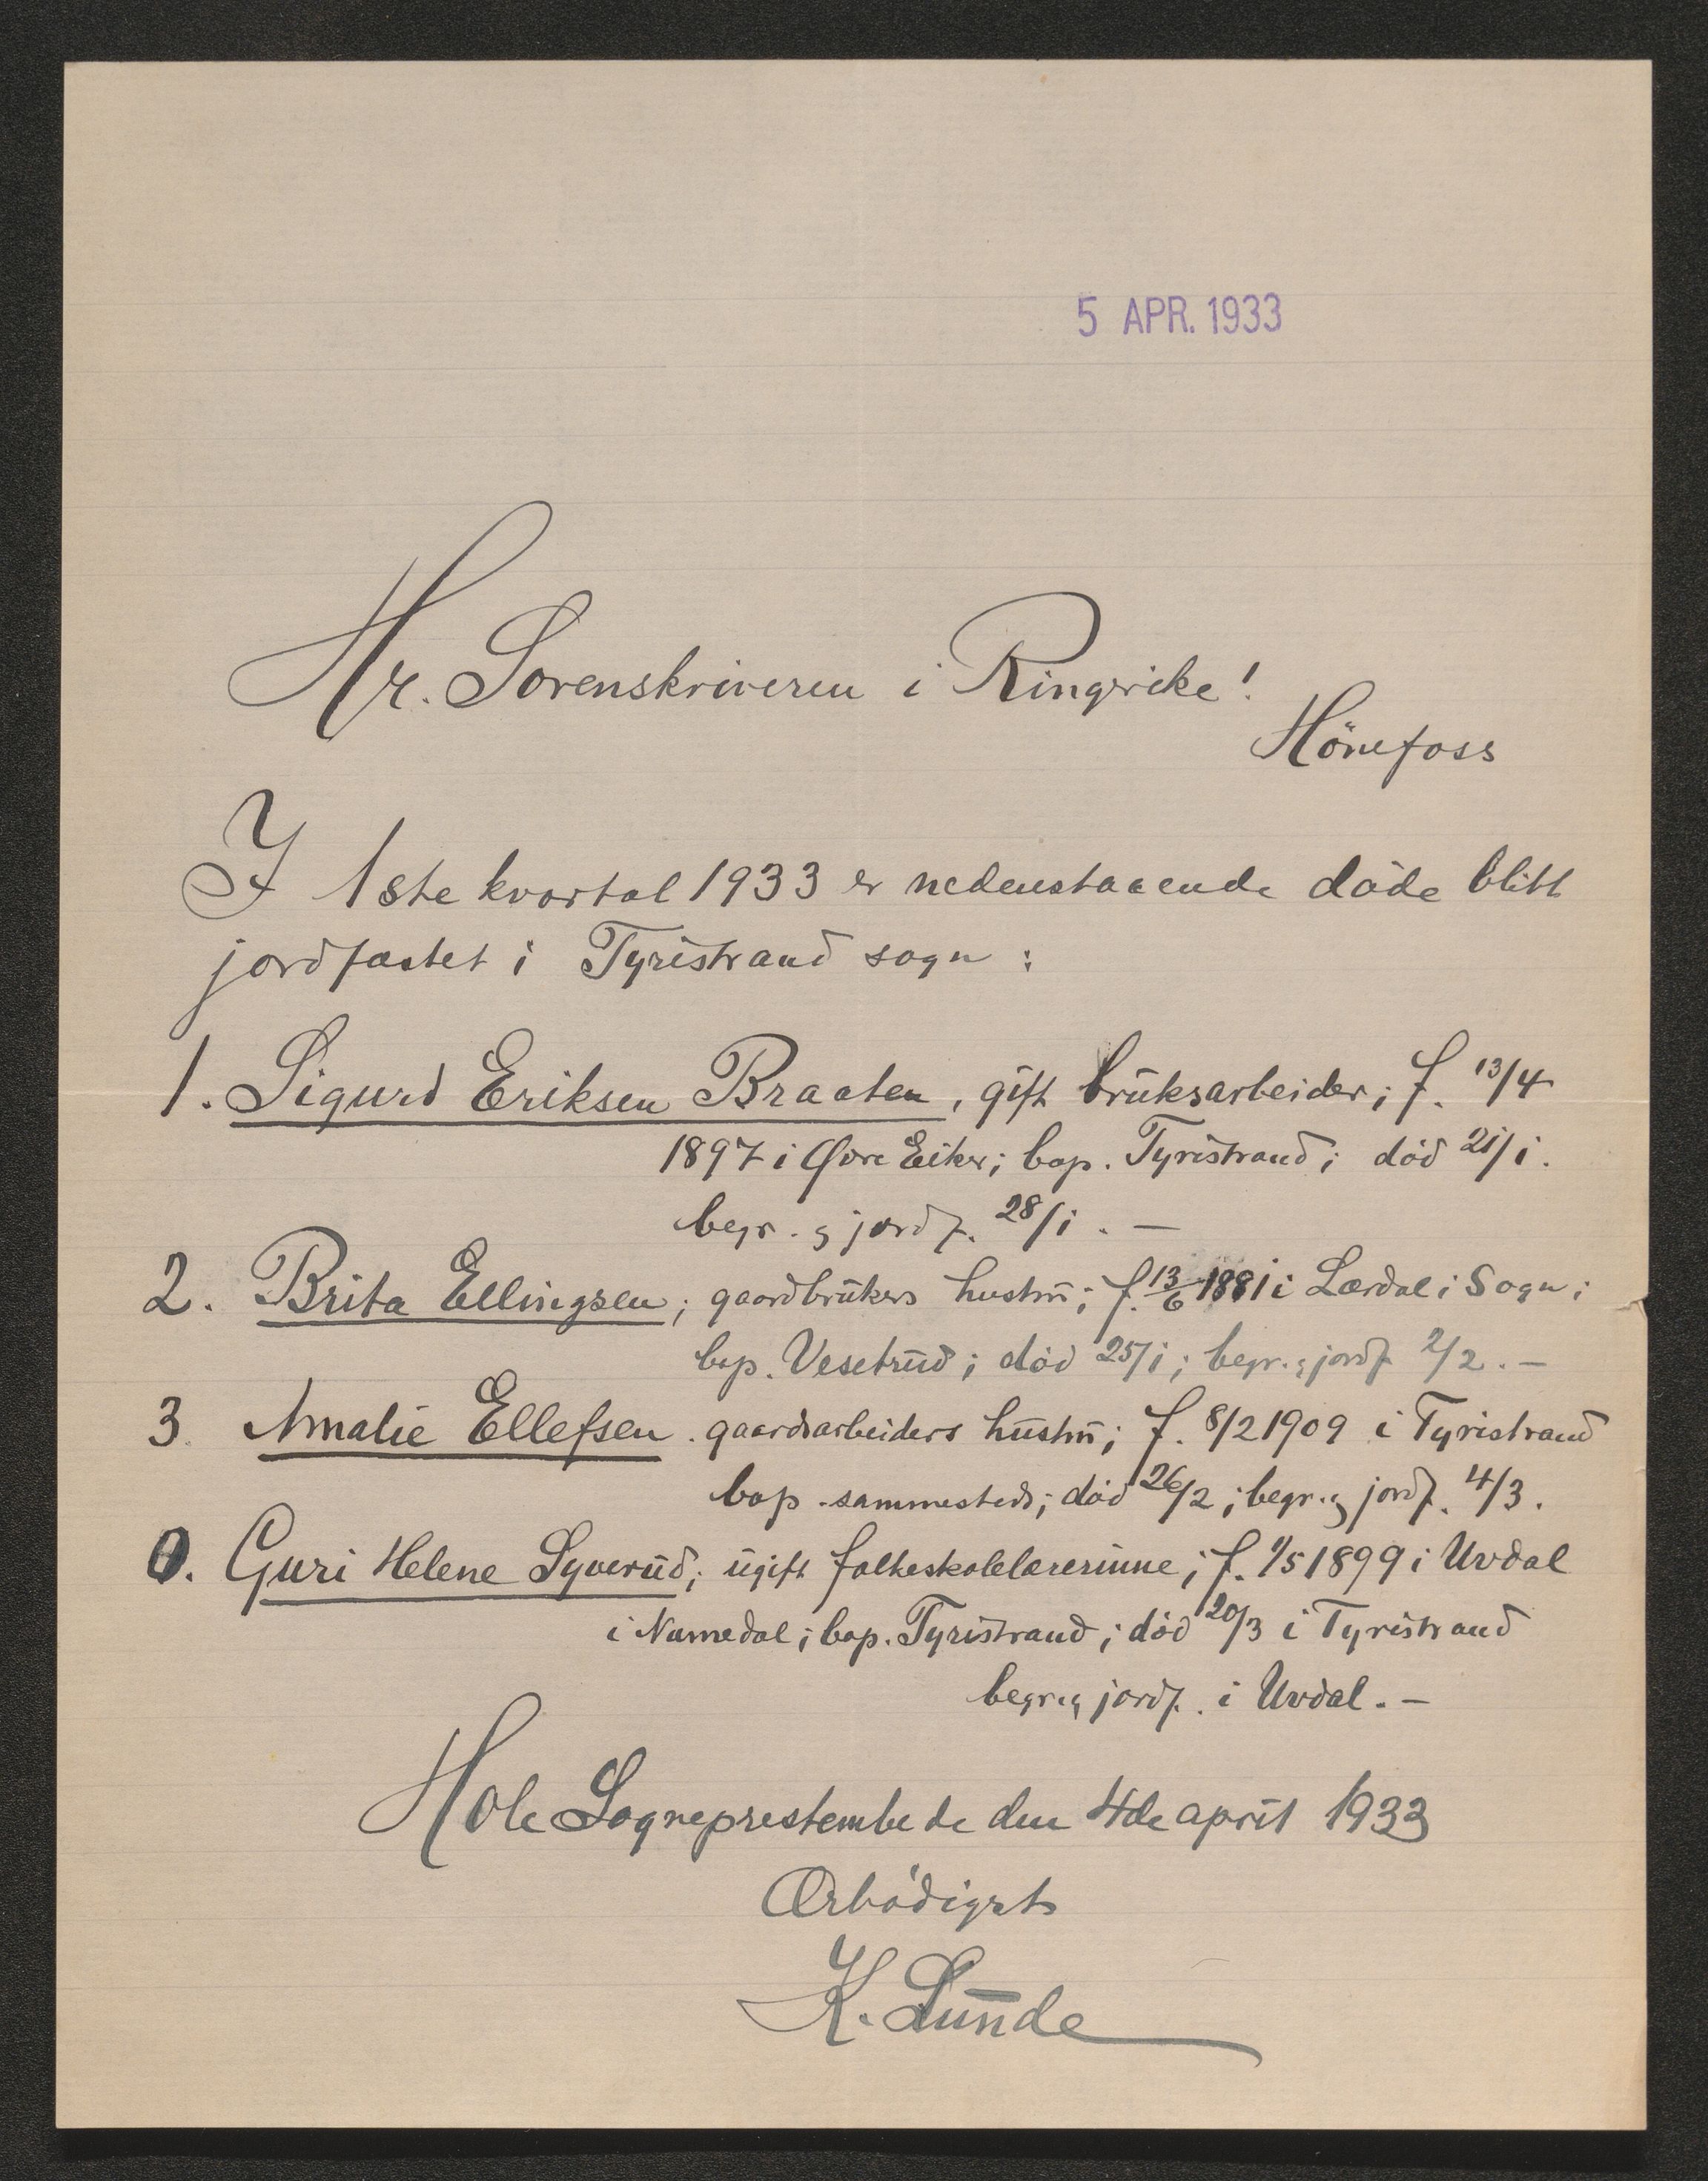 5 APR. 1933
Hr. Sorenskriveren i Ringerike!
Hönefoss
I 1ste kvartal 1933 er nedenstaaende döde blitt
jordfæstet i Tyristrand sogn :
1. Sigurd Eriksen Braaten, gift bruksarbeider; f. 13/4
1897 i Øvre Eiker; bop. Tyristrand; död 21/1.
begr. og jordf. 28/1. —
2. Brita Ellingsen; gaardbrukers hustru; f. 13/6 1881 i Lærdal i Sogn;
bop. Vesetrud; död 25/1; begr. og jordf 2/2. —
3. Amalie Ellefsen. gaardsarbeiders hustru; f. 8/2 1909 i Tyristrand
bop. sammesteds; död 26/2; begr. og jordf. 4/3.
0. Guri Helene Syverud; ugift folkeskolelærerinne; f. 1/5 1899 i Uvdal
i Numedal; bop. Tyristrand; död 20/3 i Tyristrand
begr. og jordf. i Uvdal. —
Hole Sogneprestembede den 4de april 1933
Ærbödigst
K. Lunde